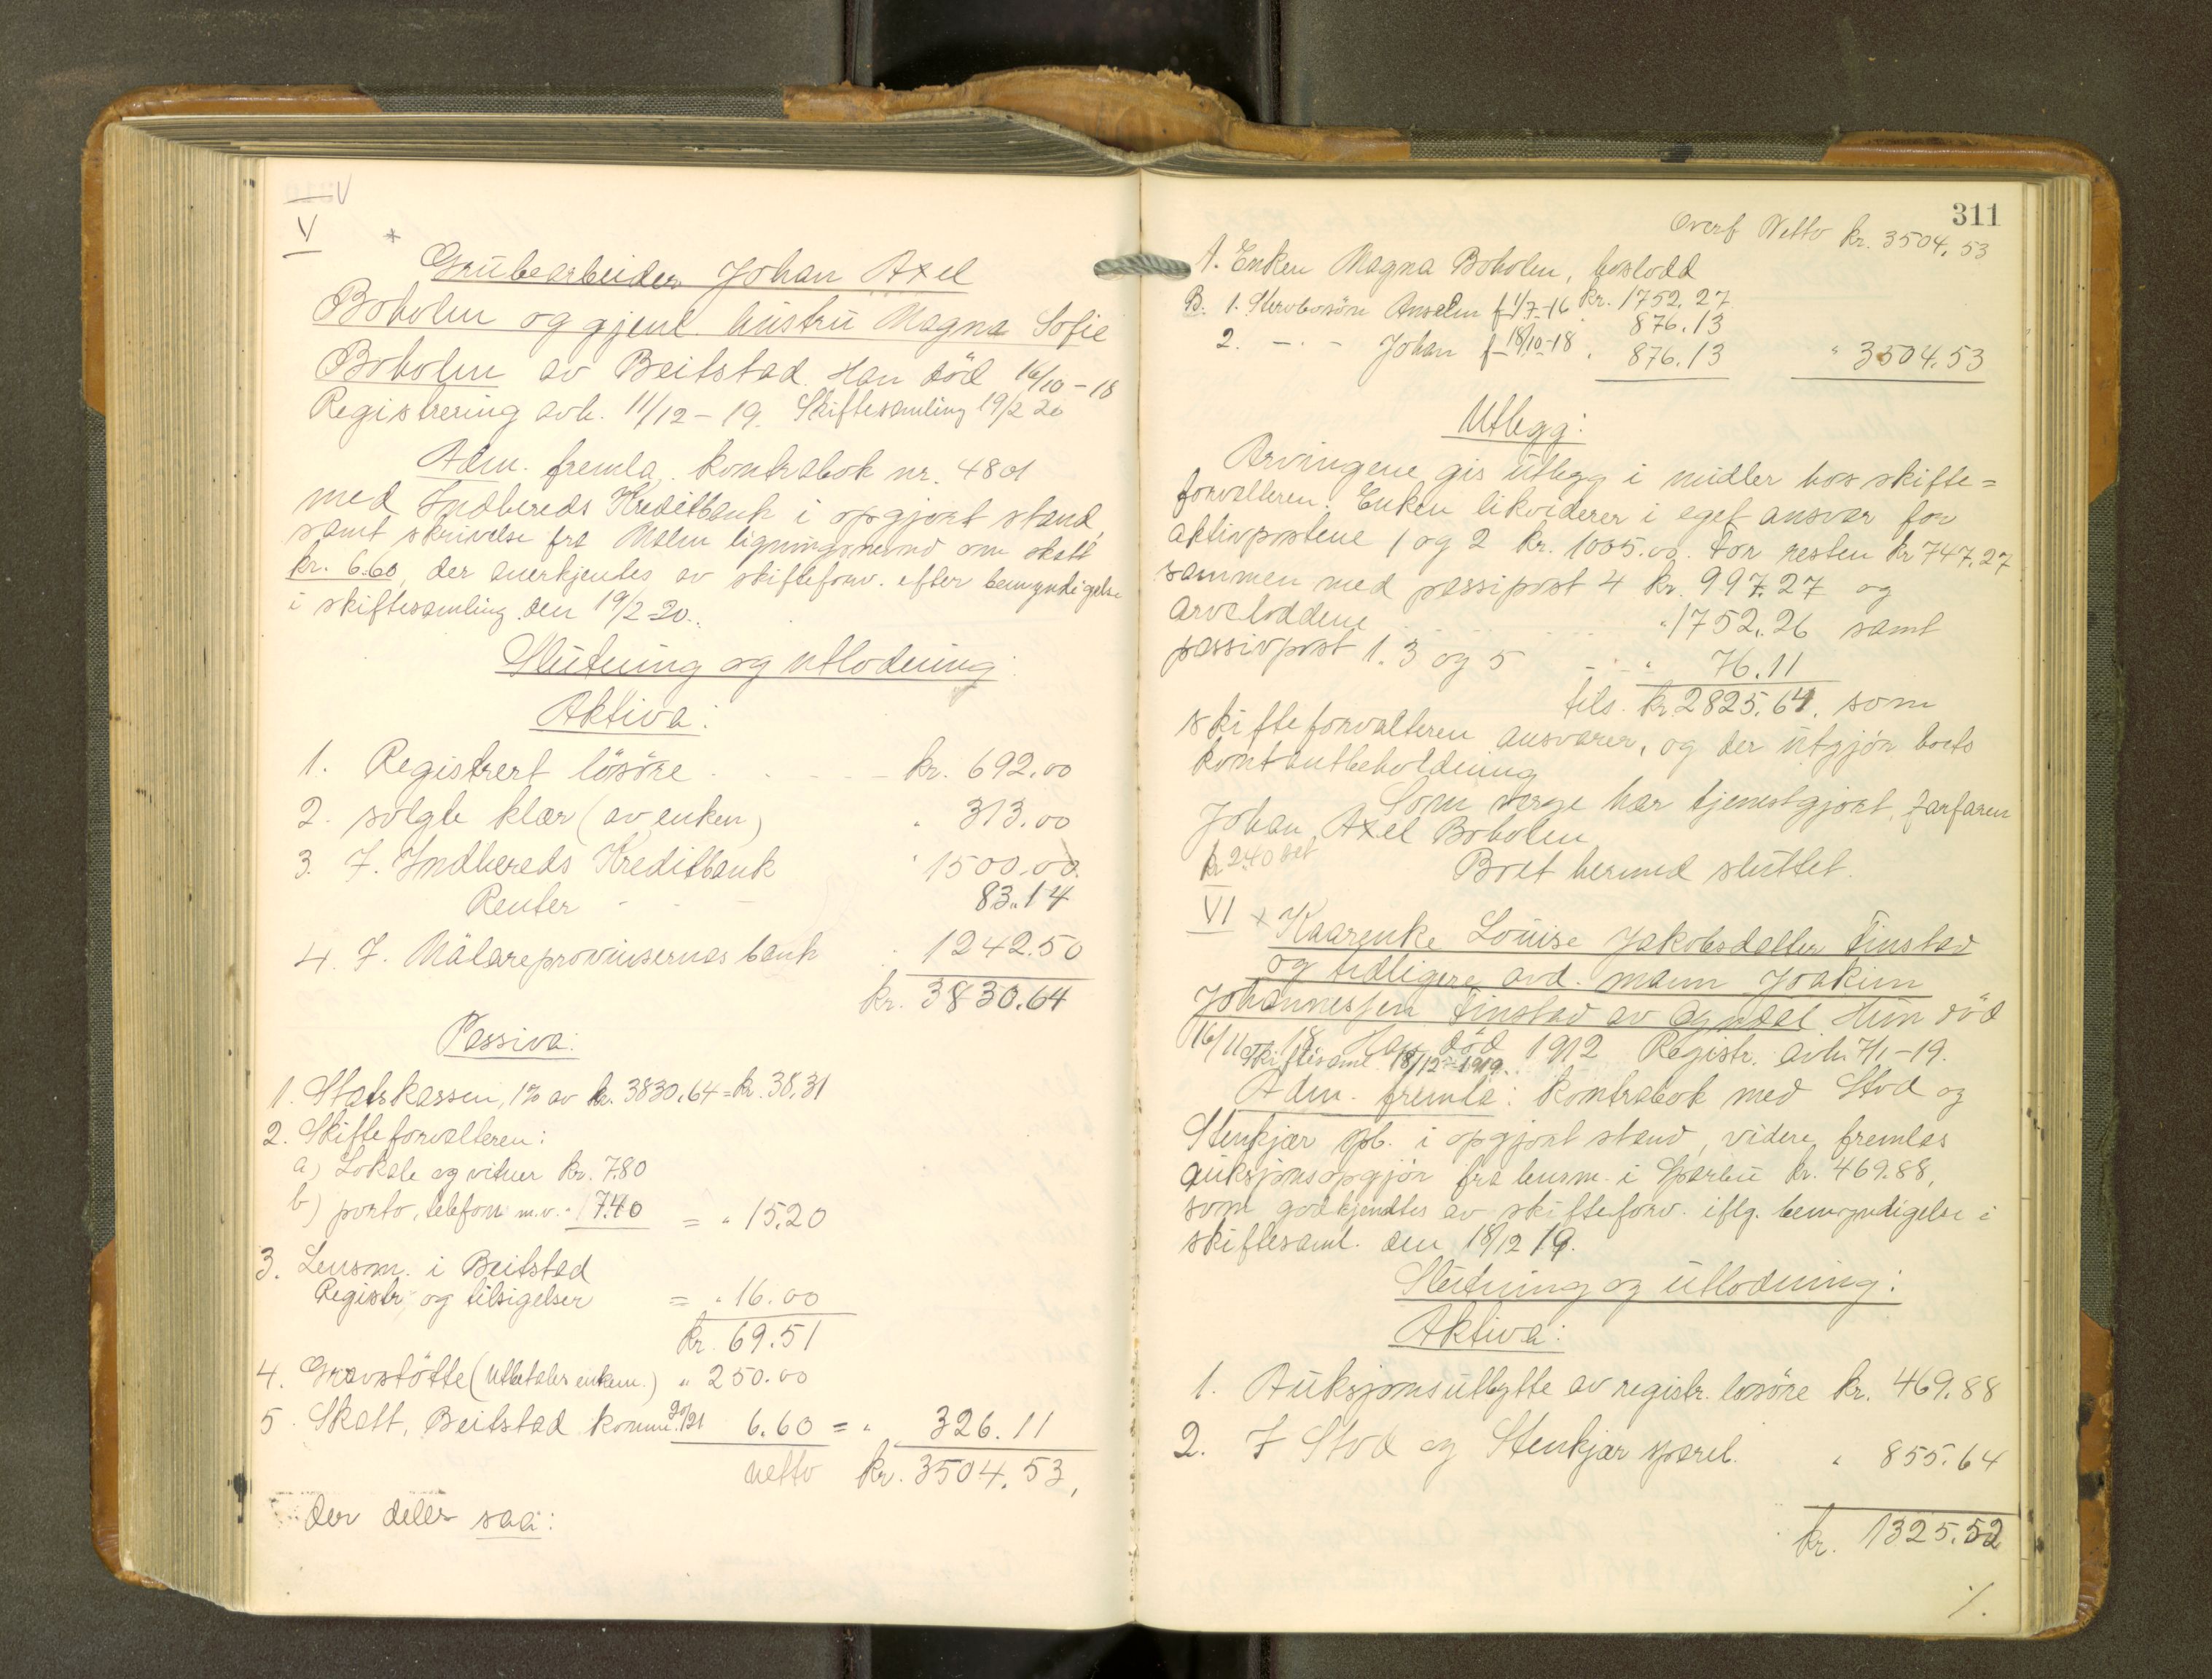 V
V
*
Grubearbeider Johan Axel
Boholm og gjenl. hustru Magna Sofie
Boholm av Beitstad. Han död 16/10-18
Registrering avh. 11/12-19. Skiftesamling 19/2 20
Adm. fremla. kontrabok nr. 4801
med Indhereds Kreditbank i opgjort stand,
samt skrivelse fra Malm ligningsnevnd om skatt
kr. 6.60, der anerkjentes av skifteforv. efter bemyndigelse
i skiftesamling den 19/2 20.
Slutning og utlodning:
Aktiva:
1. Registrert lösöre - kr. 692.00
2. solgte klær (av enken) " 313.00
3. I. Indhereds Kreditbank " 1500.00
Renter - - - 83.14
4. I. Mälareprovinsernas bank " 1242.50
kr. 3830.64
Passiva:
1. Statskassen, 1% av kr. 3830.64 = kr. 38.31
2. Skifteforvalteren:
a) Lokale og vitner kr. 7.80
b) porto, telefon m.v. " 7.40 = " 15.20
3. Lensm. i Beitstad
Registr. og tilsigelser = " 16.00
kr. 69.51
4. Gravstötte (utbetales enken.) " 250.00
5. Skatt, Beitstad komm. 20/21 6.60 = " 326.11
netto kr. 3504.53,
der deles saa:
311
Overf Netto kr. 3504.53
A. Enken Magna Boholm, boslodd
kr. 1752.27
B. 1. Anselm f 1/7-16 876.13
2. - " - Johan f 18/10-18 " 876.13 " 3504.53
Utlegg:
Arvingene gis utlegg i midler hos skifte=
forvalteren. Enken likviderer i eget ansvar for
aktivpostene 1 og 2 kr. 1005.00. For resten kr 747.27
sammen med passipost 4 kr. 997.27 og
arveloddene " 1752.26 samt
passivpost 1. 3 og 5 - " - " 76.11
tils. kr. 2825.64, som
skifteforvalteren ansvarer, og der utgjör boets
kontantbeholdning
Som verge har tjenestgjort farfaren
Johan Axel Boholm
kr 2.40 bet
Boet hermed sluttet.
VI x Kaarenke Louise Jakobsdatter Finstad
og tidligere avd. mann Joakim
Johannessen Finstad av Ogndal Hun död
16/11-18. Han död 1912 Registr. avh. 7/1-19.
Skiftesaml. 18/12-1919.
Adm. fremla: kontrabok med Stod og
Stenkjær spb. i opgjort stand, videre fremlas
auksjonsopgjör fra lensm. i Sparbu kr. 469.88,
som godkjendtes av skifteforv. iflg. bemyndigelse i
skiftesaml. den 18/12 19.
Slutning og utlodning:
Aktiva:
1. Auksjonsutbytte av registr. lösöre kr. 469.88
2. I Stod og Stenkjær spareb. " 855.64
kr. 1325.52
./.